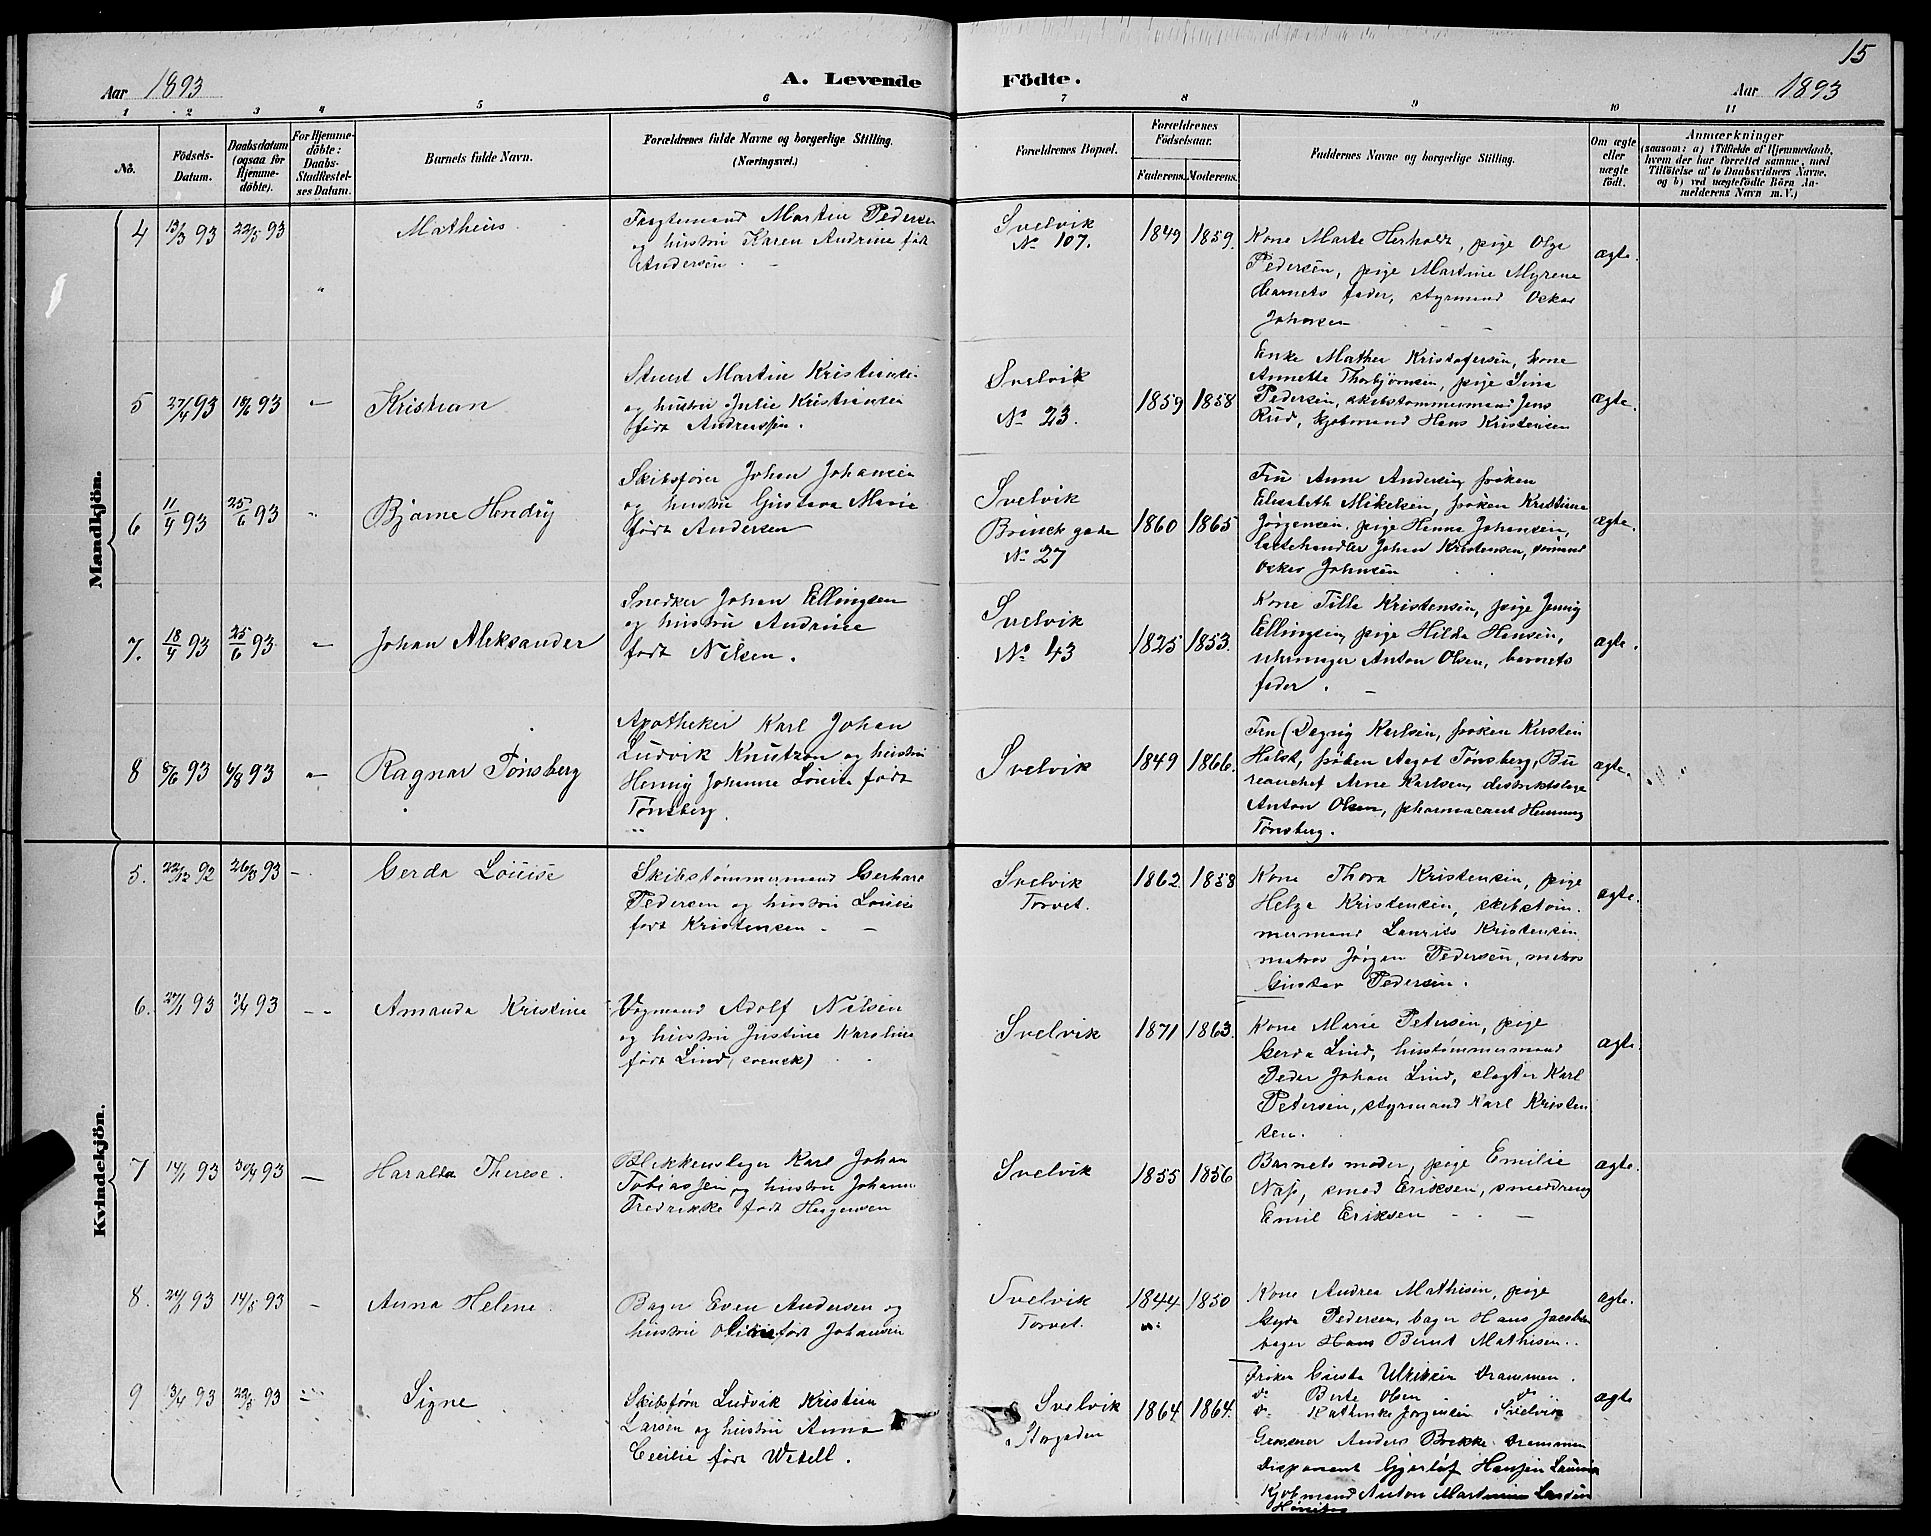 15
Aar 1893
A. Levende Födte.
Aar 1893
1 2 3 4 5 6 7 8 9 10 11
No.
Födsels-
Datum.
Daabsdatum
(ogsaa for
Hjemme-
döbte).
For Hjemme-
döbte:
Daabs-
Stadfæstel-
ses Datum.
Barnets fulde Navn.
Forældrenes fulde Navne og borgerlige Stilling.
(Næringsvei.)
Forældrenes Bopæl.
Forældrenes
Födselsaar.
Faderens. Moderens.
Faddernes Navne og borgerlige Stilling.
Om ægte
eller
uægte
født.
Anmærkninger
(saasom: a) i Tilfælde af Hjemmedaab,
hvem der har forrettet samme, med
Tilföielse af to Daabsvidners Navne,
og b) ved uægtefödte Börn An-
melderens Navn m. V.)
Mandkjön.
4 13/3 93 22/5 93
Matheus.
Fragtemand Martin Pedersen
og hustru Karen Andrine født
Andersen.
Svelvik
No 107.
1849 1859.
Kone Marte Herholdt, pige Olga
Pedersen, pige Martine Myrene
barnets fader, styrmand Oskar
Johnsen
ægte.
5 27/4 93 18/6 93 -
Kristian
Stuert Martin Kristiansen
og hustru Julie Kristiansen
født Andreassen.
Svelvik
No 23.
1859 1858
Enke Mathea Kristofersen, kone
Annette Thorbjørnsen, pige Sina
Pedersen, skibstømmermand Jens
Rud, kjøbmand Hans Kristensen
ægte.
6 11/4 93 25/6 93 "
Bjarne Hendry
Skibsfører Johan Johansen
og hustru Gustava Marie
født Andersen
Svelvik
Brinck gade
No 27
1860 1865
Fru Anna Andersen, frøken
Elisabeth Mikelsen, frøken Kristine
Jørgensen, pige Hanna Johansen,
lastehandler Johan Kristensen, sømand
Oskar Johnsen
ægte.
7. 18/4 93 25/6 93 -
Johan Aleksander
Snedker Johan Ellingsen
og hustru Andrine
født Nilsen.
Svelvik
No 43
1825 1853.
Kone Tilla Kristensen, pige Jenny
Ellingsen, pige Hilda Hansen,
uhrmager Anton Olsen, barnets
fader.
ægte.
8 8/6 93 6/8 93 -
Ragnar Tønsberg
Apotheker Karl Johan
Ludvik Knutzon og hustru
Henny Johanne Louise født
Tønsberg.
Svelvik
1849 1866.
Fru Dagny Karlsen, frøken Kirsten
Holst, frøken Aagot Tønsberg, Bu
reauchef Arne Karlsen, distriktslæge
Anton Olsen, pharmaceut Henning
Tønsberg.
ægte.
Kvindekjön.
5. 22/12 92 26/3 93 -
Gerda Louise
Skibstømmermand Gerhard
Pedersen og hustru Louise
født Kristensen -
Svelvik
Torvet.
1862 1858
Kone Thora Kristensen, pige
Helga Kristensen, skibstøm-
mermand Laurits Kristensen
matros Jørgen Pedersen, matros
Gustav Pedersen.
ægte.
6. 27/1 93 3/4 93 - -
Amanda Kristine
Vognmand Adolf Nilsen
og hustru Justine Karoline
født Lind, svensk)
Svelvik
1871 1863.
Kone Marie Petersen, pige
Gerda Lind, hustømmermand
Peder Johan Lind, slagter Karl
Petersen, styrmand Karl Kristen
sen.
ægte.
7 14/1 93 30/4 93 -
Haralda Therese.
Blikkenslager Karl Johan
Tobiassen og hustru Johanne
Fredrikke født Hergensen
Svelvik
1855 1856
Barnets moder, pige Emilie
Næss, smed Eriksen, smeddreng
Emil Eriksen - - -
ægte.
8. 93 14/5 93 -
Anna Helene.
Bager Even Andersen og
hustru Oline født Johansen
Svelvik
Torvet.
1844 1850
Kone Andrea Mathisen, pige
Gyda Pedersen, bager Hans Jacobsen
bager Hans Bernt Mathisen.
ægte.
9 13/4 93 22/5 93
Signe
Skibsfører Ludvik Kristian
Larsen og hustru Anna
Cecilie født Wetell.
Svelvik
Storgaden
1864 1864.
Frøken Gusta Ulriksen Drammen.
Do Berte Olsen Do
Do Kathinka Jørgensen Svelvik
Grosserer Anders Brekke Drammen
Disponent Gjerløf Hansen Laurvig
Kjøbmand Anton Martinius Larsen
ægte